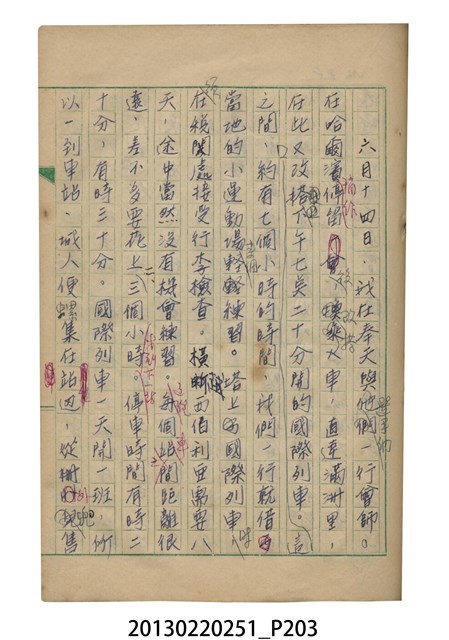 六月十四日，我在奉天與他們一行會師。
在哈爾濱停留，換乘火車，直達滿洲里，
在此又改搭下午七点二十分開的國際列車。這
之間，約有七個小時的時間，我們一行就借
當地的小運動場輕鬆練習。搭上國際列車
在稅關處接受行李檢查。橫斷西伯利亞需要八
天，途中當然沒有機會練習。每個站間距離很
遠，差不多要花上二、三個小時。停車時間有時二
十分，有時三十分。國際列車一天開一班，所
以一到車站，城人便集在站边，從
20130220251_P203